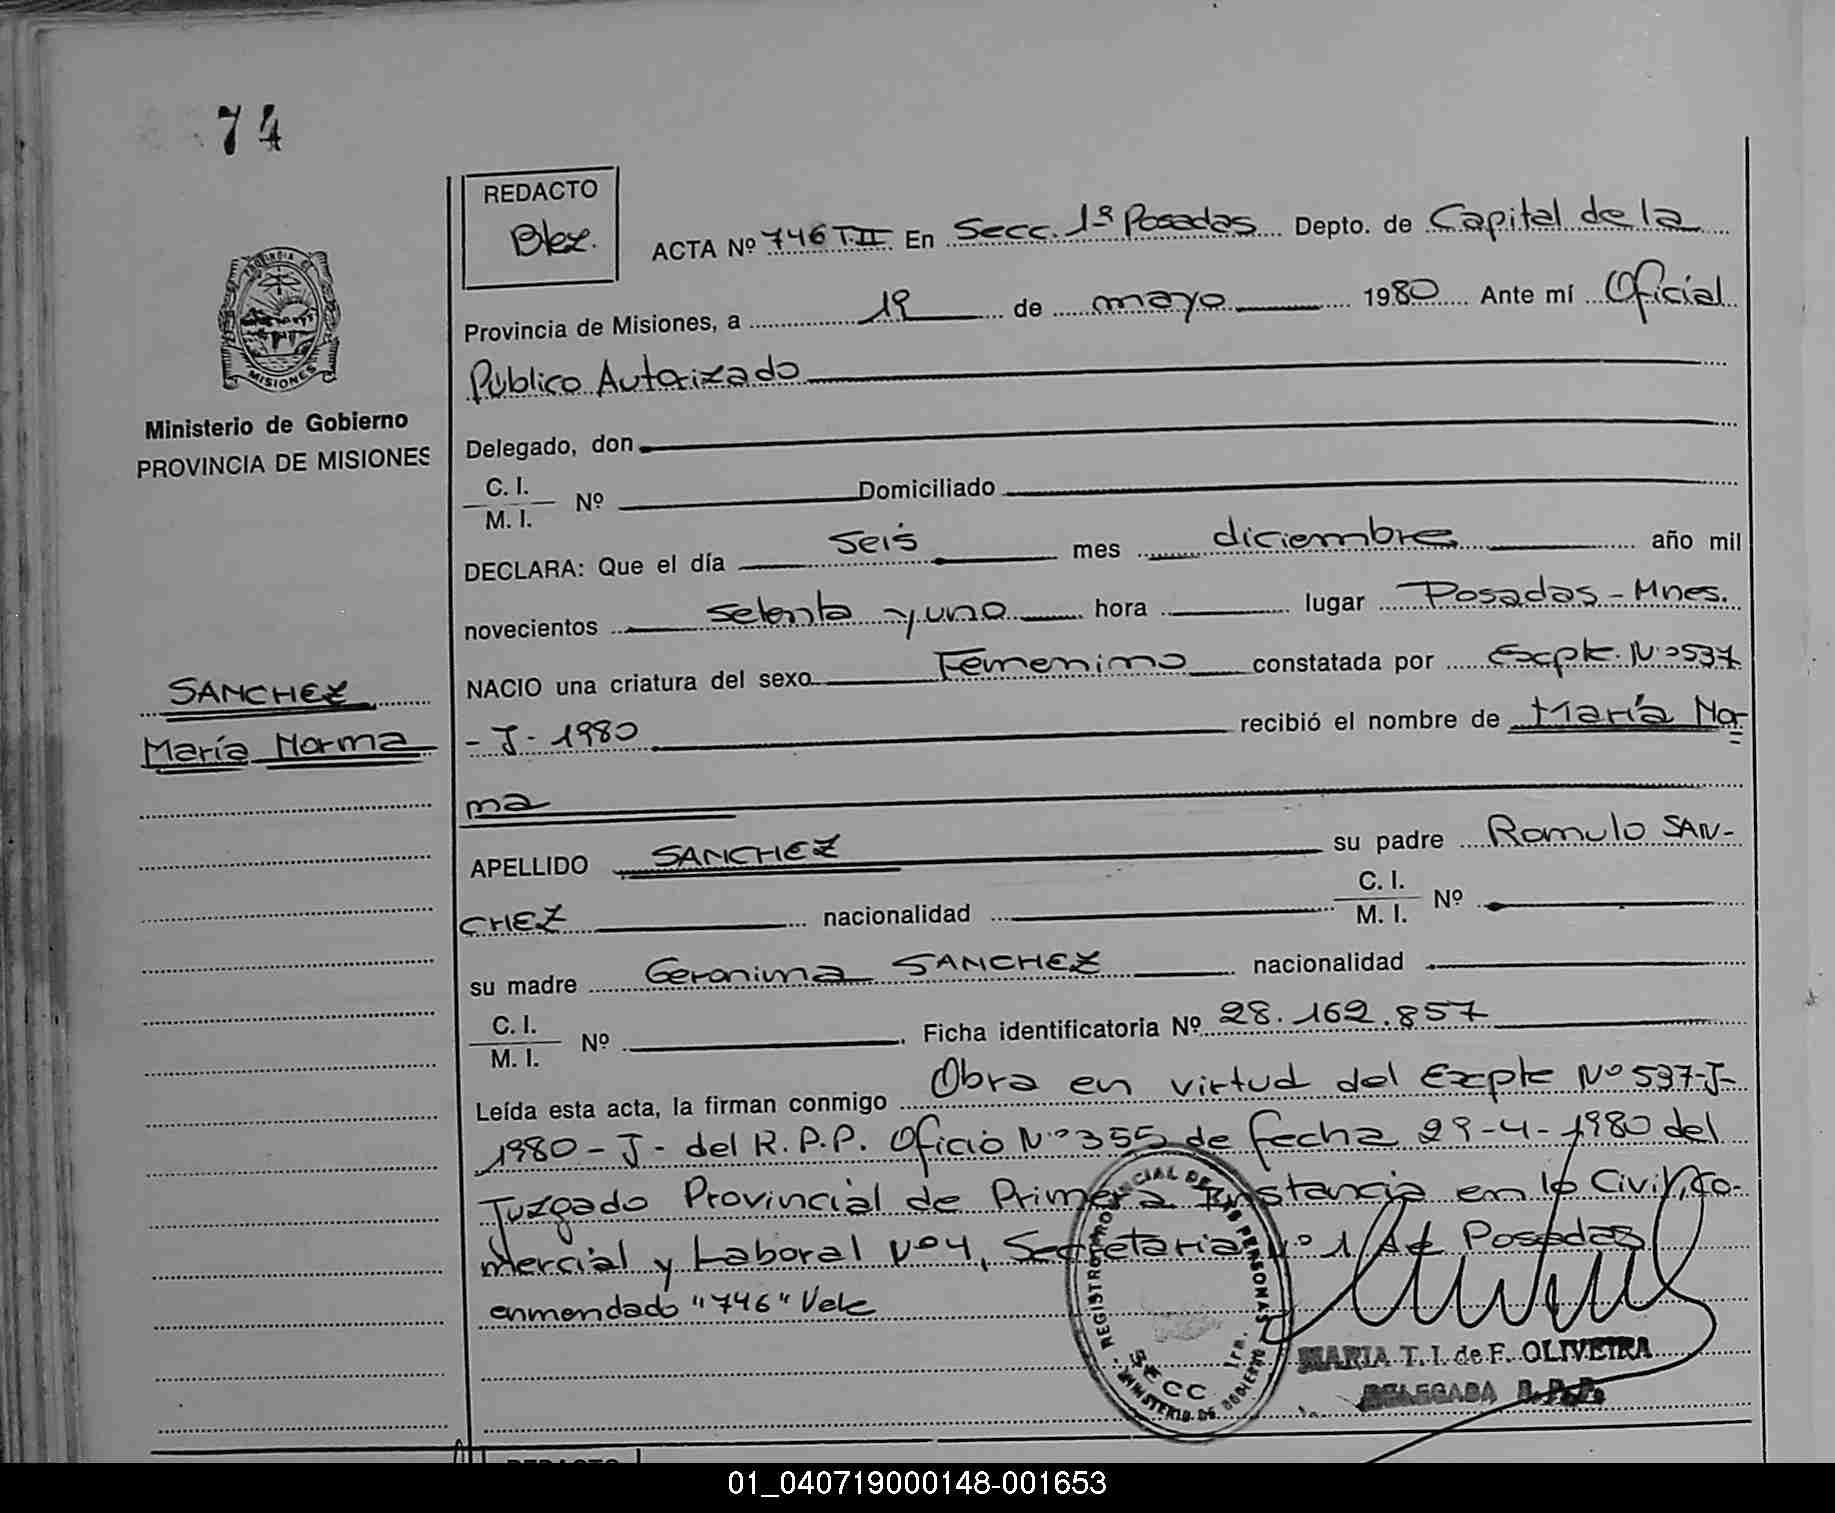 74
REDACTO
Blez.
ACTA Nº 746 T.II En Secc. 1ª Posadas Depto. de Capital de la
Provincia de Misiones, a 12 de mayo 1980 Ante mí Oficial
Público Autorizado
Delegado, don
C. I.
M. I. Nº Domiciliado
DECLARA: Que el día seis mes diciembre año mil
novecientos setenta y uno hora lugar Posadas - Mnes.
NACIO una criatura del sexo Femenino constatada por Expte. Nº 537
- J - 1980 recibió el nombre de María Nor-
ma
APELLIDO SANCHEZ su padre Romulo SAN-
CHEZ nacionalidad C. I.
M. I. Nº
su madre Geronima SANCHEZ nacionalidad
C. I.
M. I. Nº . Ficha identificatoria Nº 28.162.857
Leída esta acta, la firman conmigo Obra en virtud del Expte Nº 537-J-
1980 - J - del R. P. P. Oficio Nº 355 de fecha 29-4-1980 del
Juzgado Provincial de Primera Instancia en lo Civil, Co-
mercial y Laboral Nº 4, Secretaria Nº 1 de Posadas
enmendado "746" Vele
PROVINCIA DE
MISIONES
Ministerio de Gobierno
PROVINCIA DE MISIONES
SANCHEZ
María Norma
REGISTRO PROVINCIAL DE LAS PERSONAS
MINISTERIO DE GOBIERNO
SECC 1ra.
MARIA T. I. de F. OLIVEIRA
DELEGADA R. P. P.
REDACTO
01_040719000148-001653